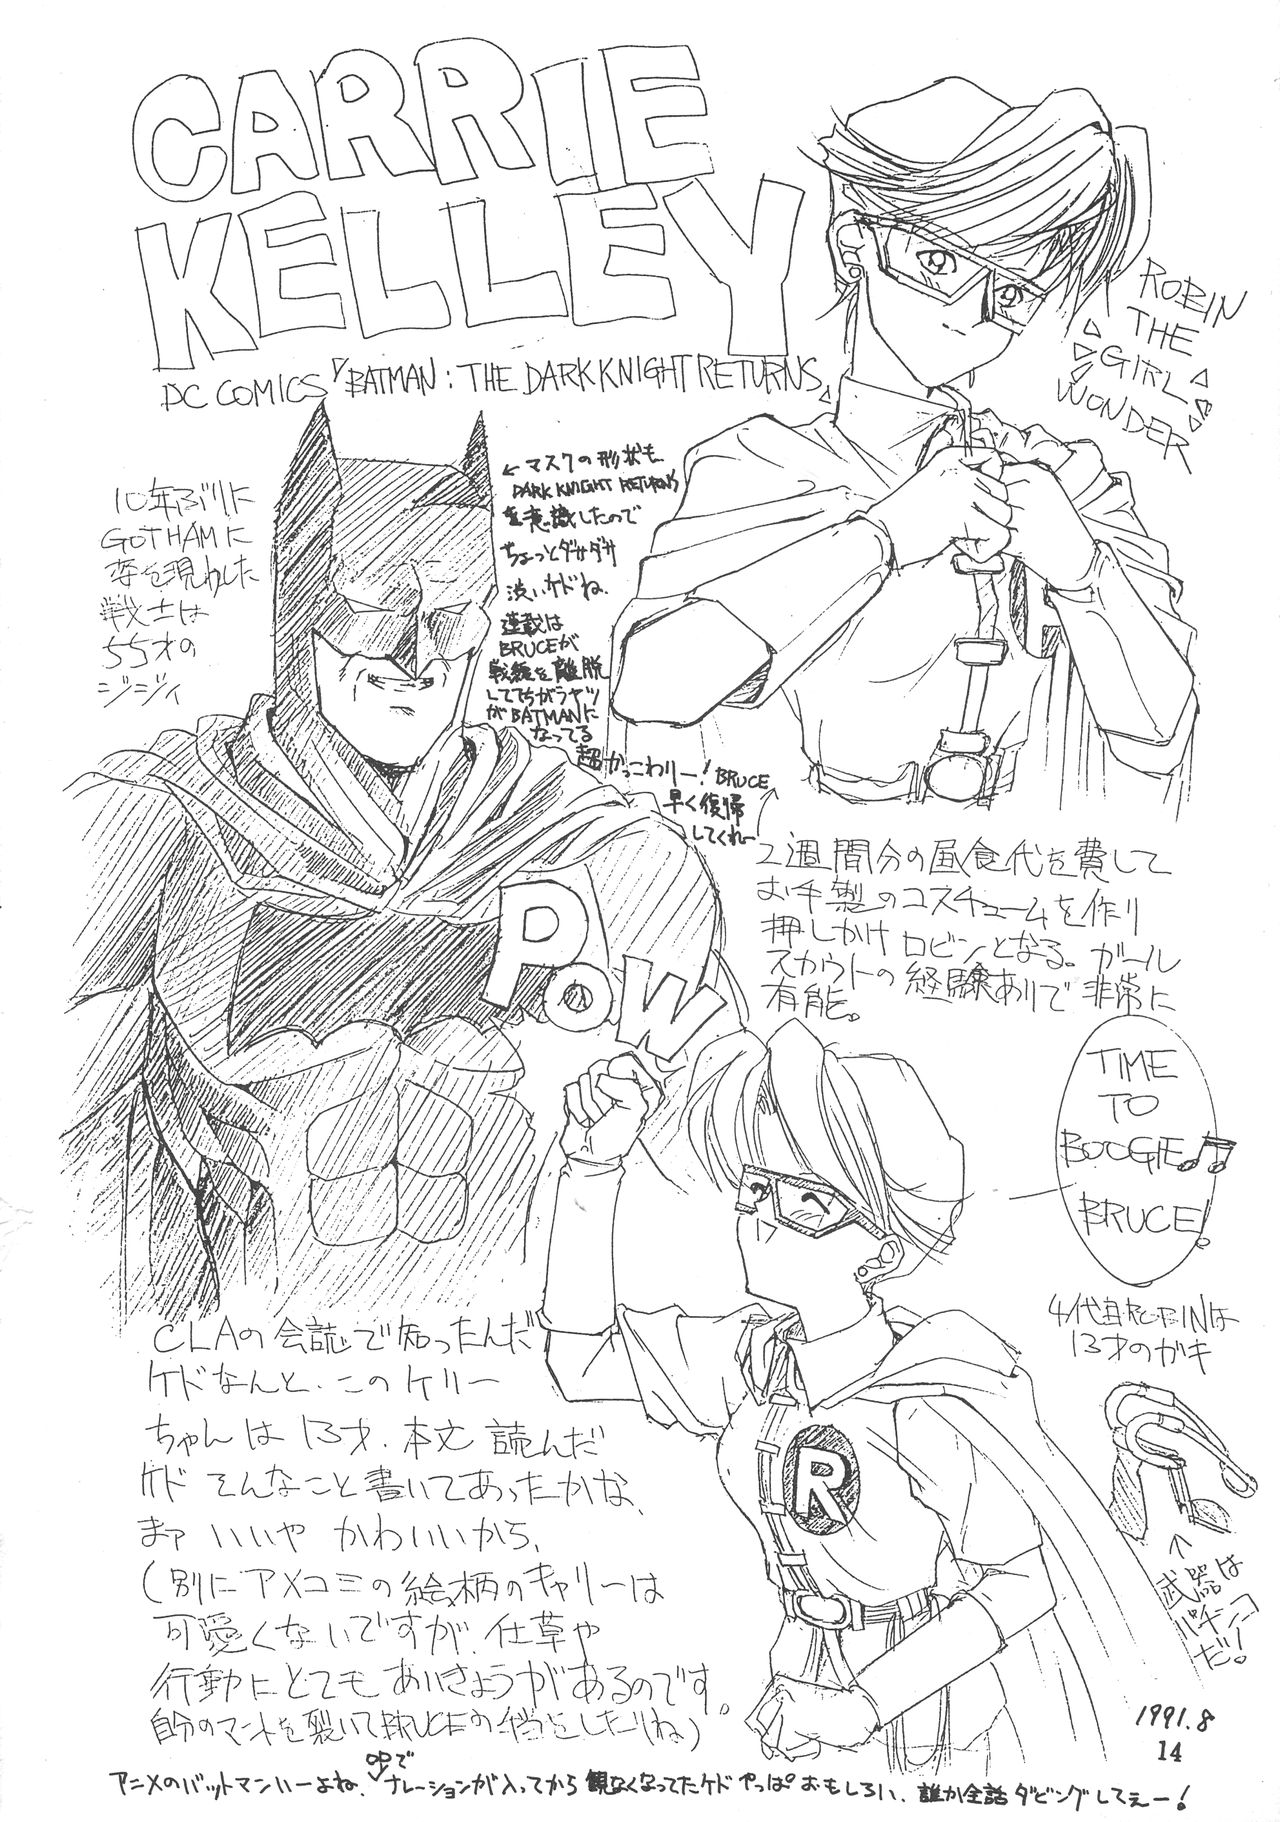 CARRIE
KELLEY
DC COMICS 『BATMAN : THE DARK KNIGHT RETURNS』
ROBIN
THE
GIRL
WONDER
10年ぶりに
GOTHAMに
姿を現わした
戦士は
55才の
ジジィ
←マスクの形状も
DARK KNIGHT RETURNS
を意識したので
ちょっとダサダサ
渋いケドね.
連載は
BRUCEが
戦線を離脱
しててちがうヤツ
がBATMANに
なってる
超かっこわりー! BRUCE
早く復帰
してくれー
2週間分の昼食代を費して
お手製のコスチュームを作り
押しかけロビンとなる。ガール
スカウトの経験ありで非常に
有能。
POW
TIME
TO
BOOGIE♫
BRUCE!
4代目ROBINは
13才のガキ
R
↑
武器は
パチンコ
だ!
CLAの会誌で知ったんだ
ケドなんと、このケリー
ちゃんは13才.本文読んだ
ケドそんなこと書いてあったかな、
まァいいや かわいいから、
(別にアメコミの絵柄のキャリーは
可愛くないですが、仕草や
行動にとてもあいきょうがあるのです。
自分のマントを裂いてBRUCEの
したりね)
1991.8
14
アニメのバットマンいーよね、OPでナレーションが入ってから観なくなってたケドやっぱおもしろい、誰か全話ダビングしてぇー!